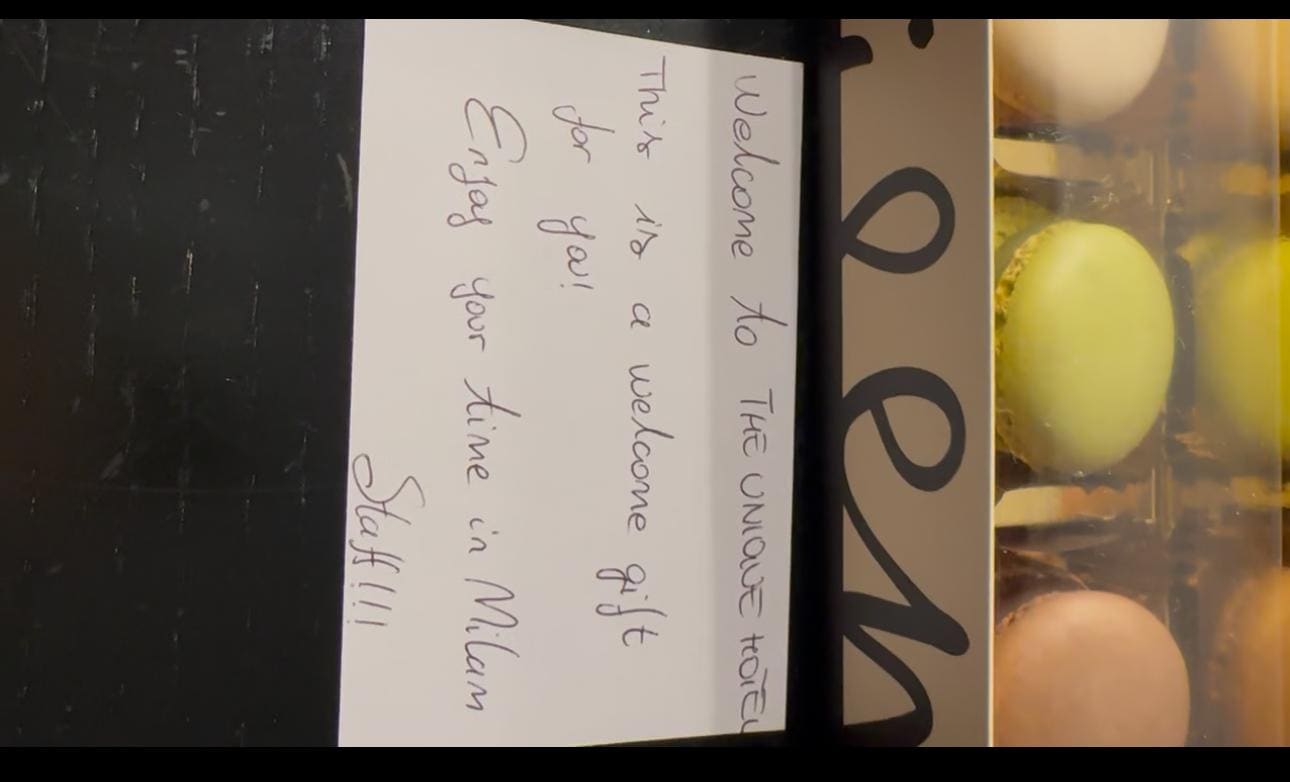 Welcome to THE UNIQUE HOTEL
This is a welcome gift
for you!
Enjoy your time in Milam
Staff!!!